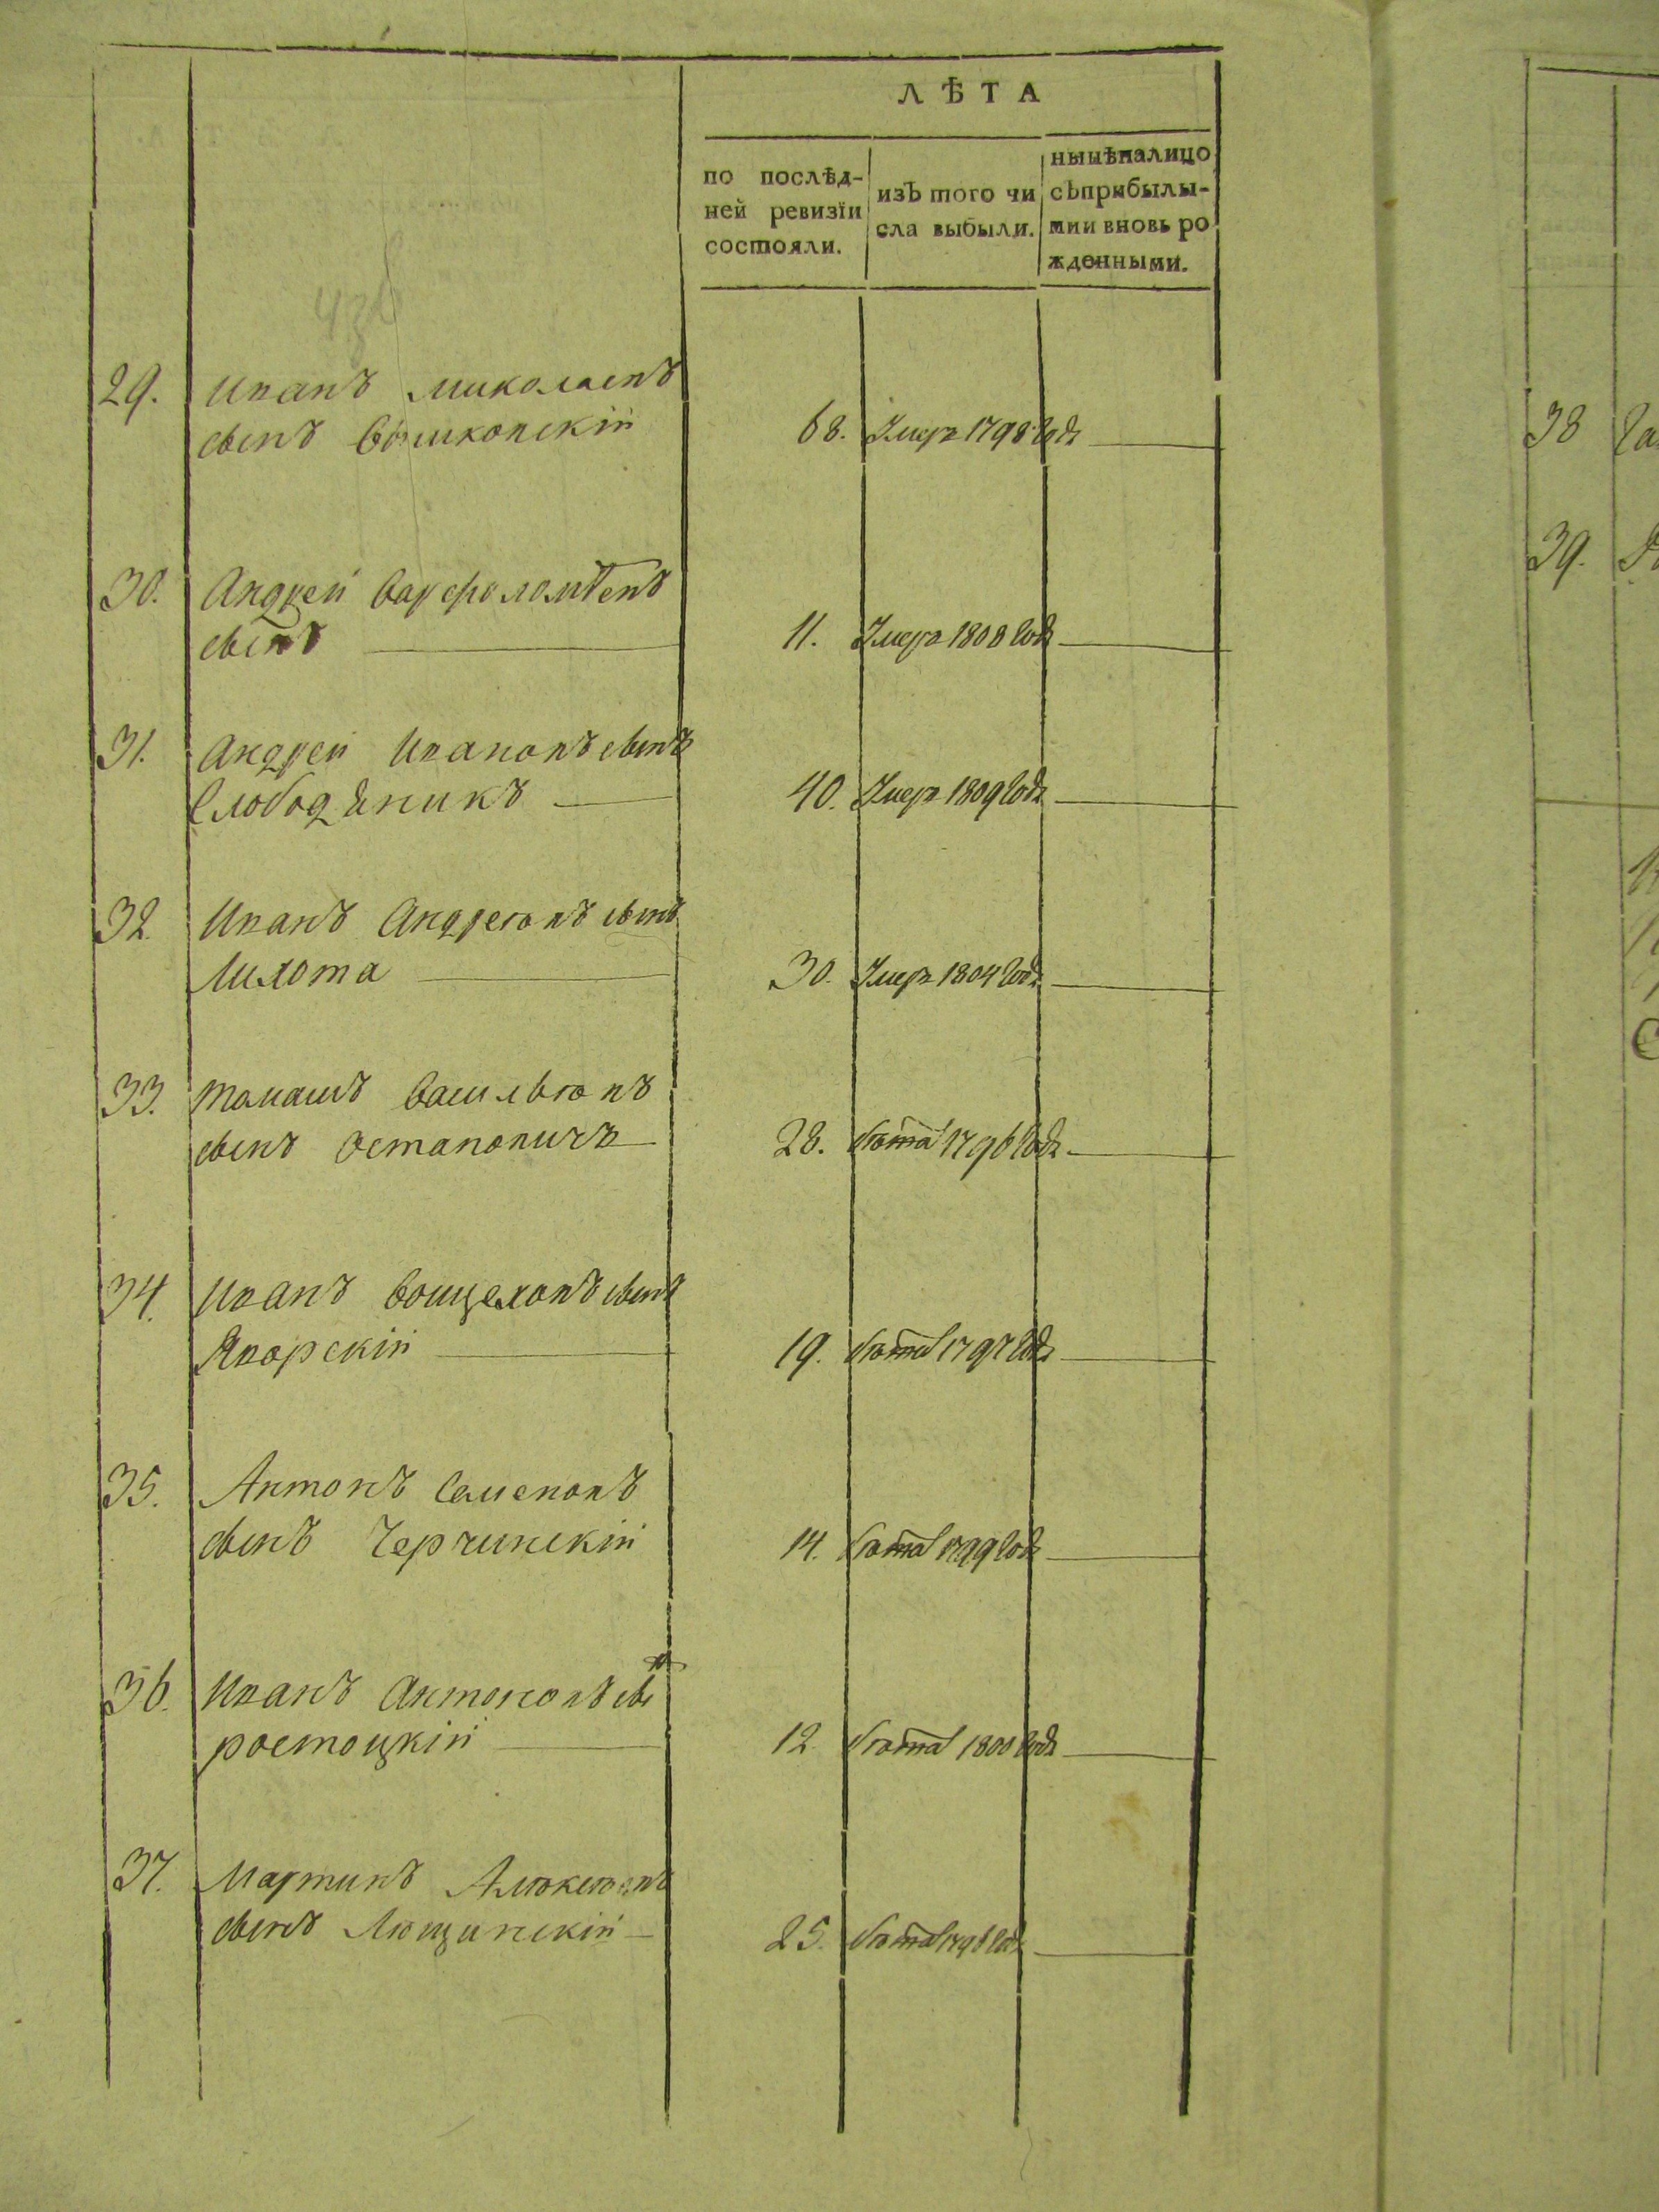 ЛѢТА
по послѣд-
ней ревизїи
состояли.
изЪ того чи
сла выбыли.
нынѣналицо
сЪприбылы-
ми и вновь ро
жденными.
29. Иванъ Миколаевъ
сынъ 68. Умеръ 1798 годѣ
30. Андрей Варфоломѣевъ
сынъ 11. Умеръ 1808 годѣ
31. Андрей Ивановъ сынъ
Слободяникъ 40. Умеръ 1809 годѣ
32. Иванъ Андреювъ сынъ
Лихота 30. Умеръ 1804 годѣ
33. Томашъ Васильювъ
сынъ Остаповичъ 28. бѣжа 1796 годѣ
34. Иванъ Войцеховъ сынъ
Яворскій 19. бѣжа 1797 годѣ
35. Антонъ Семеновъ
сынъ Черчинскій 14. бѣжа 1799 годѣ
36. Иванъ Антоновъ сынъ
ростоцкій 12. бѣжа 1800 годѣ
37. Мартинъ
сынъ Лющинскій 25. бѣжа 1796 годѣ
38
39.